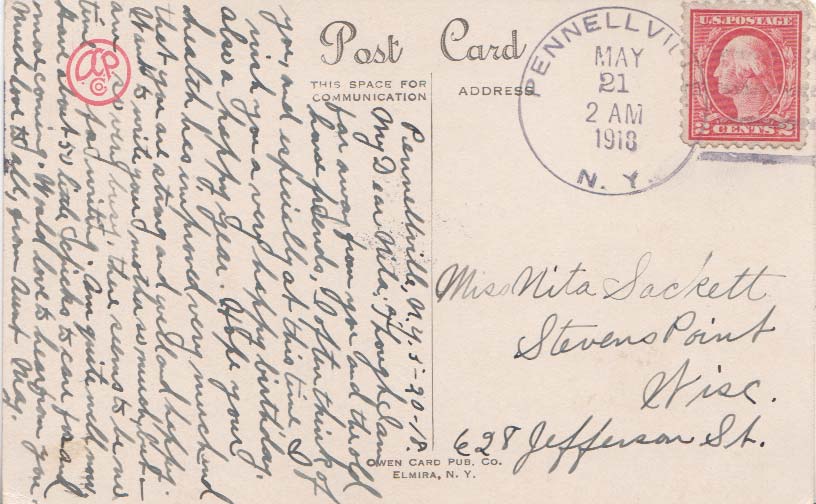 Post Card
THIS SPACE FOR
COMMUNICATION
ADDRESS
PENNELLVIL
MAY
21
2 AM
1918
N. Y.
U.S. POSTAGE
2 CENTS 2
APCo
Pennellville, N.Y. 5-20-18.
My Dear Nita; Though I am
far away from you and the old
home friends, I often think of
you, and especially at this time. I
wish you a very happy birthday,
also a happy year. Hope your
health has improved very much and
that you are strong and well and happy.
Want to write your mother so much, but
am so very busy, there seems to be no
time for writing. Am quite well now,
have about 50 little chicks to care for and
more coming. Would love to hear from you.
Much love to all, from Aunt May.
Miss Nita Sackett
Stevens Point
Wisc.
628 Jefferson St.
OWEN CARD PUB. CO.
ELMIRA, N. Y.